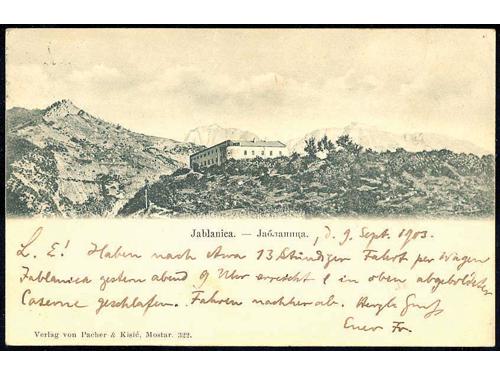 Jablanica. — Јабланица. , d. 9. Sept. 1903.
L. E! Haben nach etwa 13 Stündiger Fahrt per Wagen
Jablanica gestern abend 9 Uhr erreicht & in oben abgebildeter
Caserne geschlafen. Fahren nachher ab. Herzl. Gruß
Euer Fr.
Verlag von Pacher & Kisić, Mostar. 322.